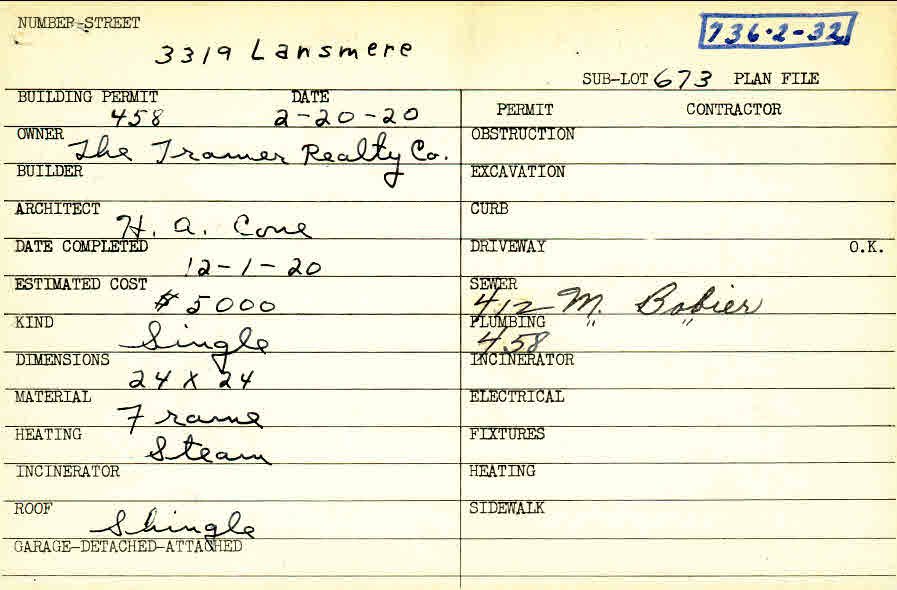 NUMBER-STREET
3319 Lansmere
736-2-32
SUB-LOT 673 PLAN FILE
BUILDING PERMIT DATE
458 2-20-20
PERMIT CONTRACTOR
OWNER
The Tramer Realty Co.
OBSTRUCTION
BUILDER
EXCAVATION
ARCHITECT
H. A. Cone
CURB
DATE COMPLETED
12-1-20
DRIVEWAY O.K.
ESTIMATED COST
$ 5000
SEWER
412 M. Bobier
KIND
Single
PLUMBING " "
458
DIMENSIONS
24 X 24
INCINERATOR
MATERIAL
Frame
ELECTRICAL
HEATING
Steam
FIXTURES
INCINERATOR
HEATING
ROOF
Shingle
SIDEWALK
GARAGE-DETACHED-ATTACHED